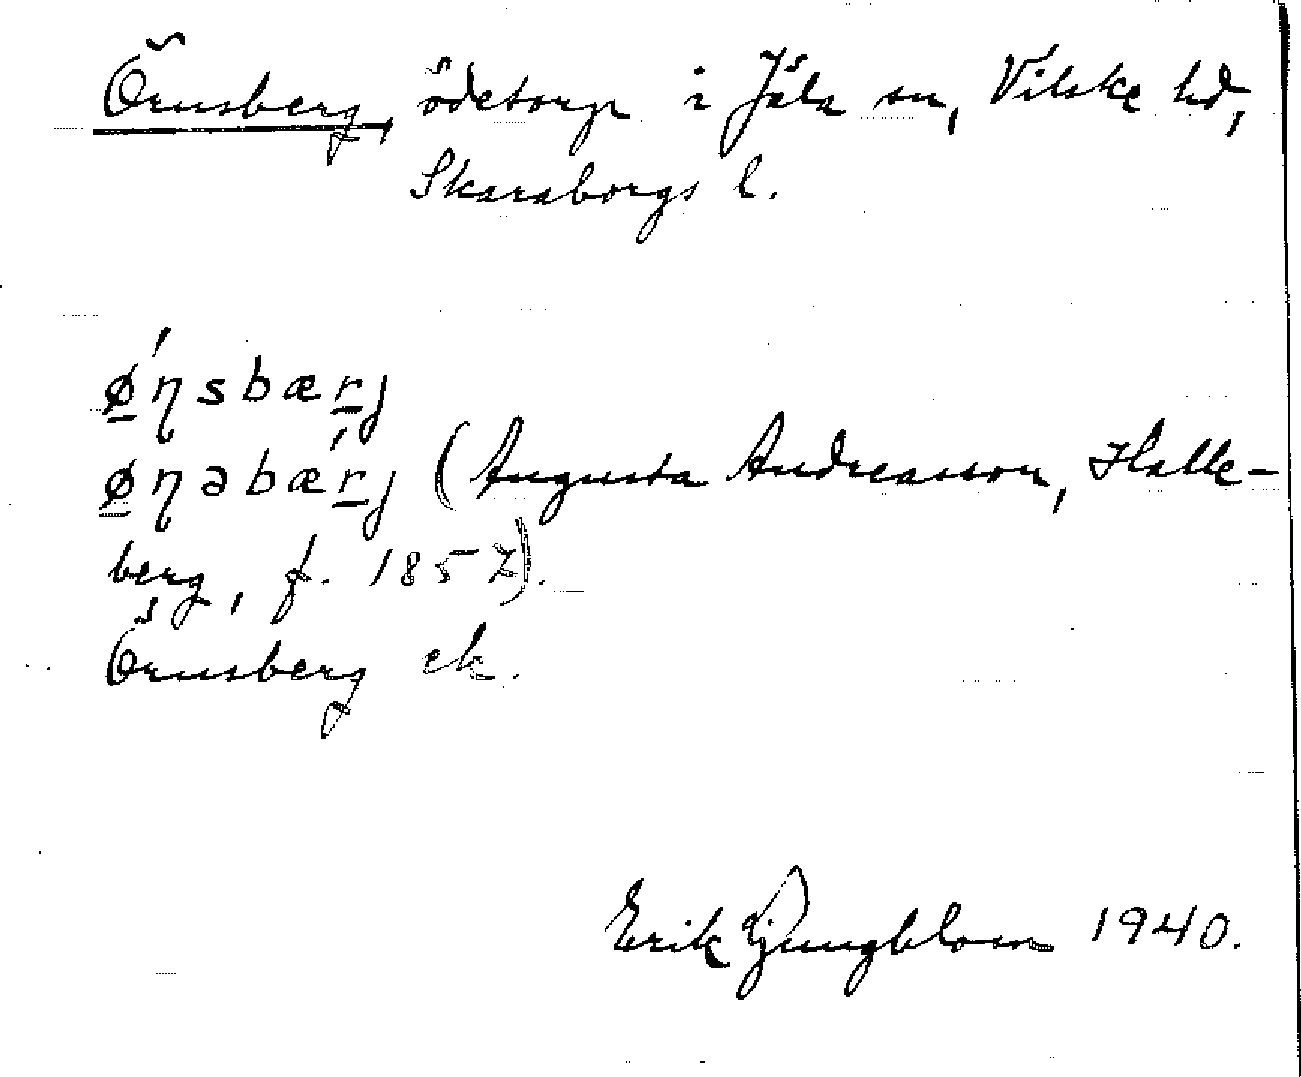 Örnsberg, ödetorp i Jäla sn, Vilske hd,
Skaraborgs l.
ǿ̱ηsbæṟj
ø̱ηəbǽṟj (Augusta Andreasson, Halle-
berg, f. 1857).
Örnsberg ek.
Erik Ljungblom 1940.